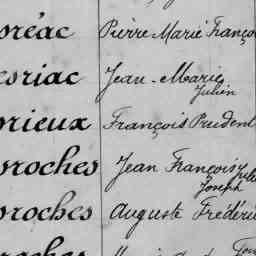 oréac Pierre Marie Franço
esriac Jean-Marie
Julien
orieux François Prudent
sroches Jean François
Joseph
sroches Auguste Frédéri